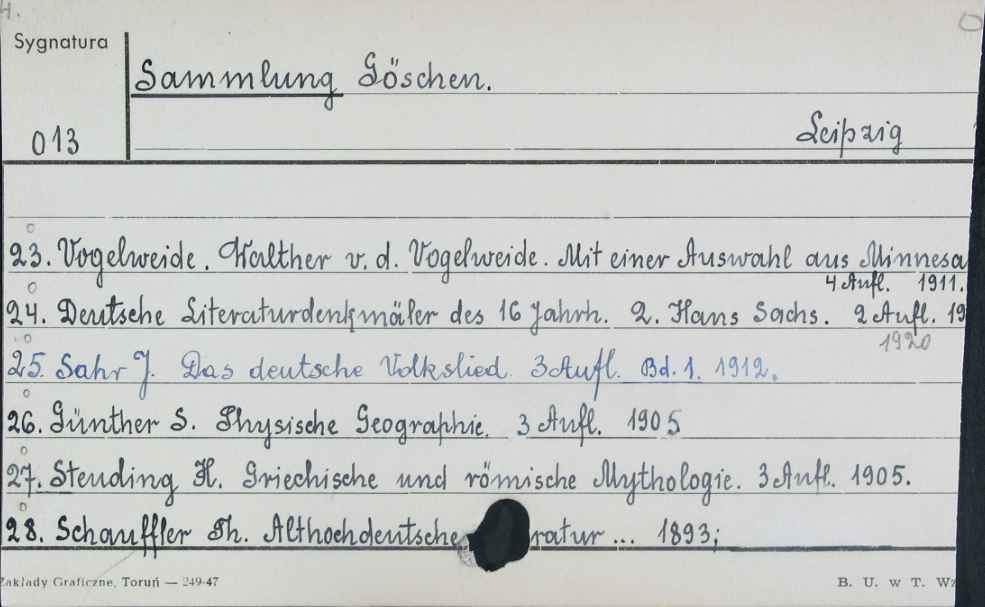 H.
Sygnatura
Sammlung Göschen.
013
Leipzig
23. Vogelweide. Walther v. d. Vogelweide. Mit einer Auswahl aus Minnesa
4 Aufl. 1911.
24. Deutsche Literaturdenkmäler des 16 Jahrh. 2. Hans Sachs. 2 Aufl. 19
1920
25. Sahr J. Das deutsche Volkslied. 3 Aufl. Bd. 1. 1912.
26. Günther S. Physische Geographie. 3 Aufl. 1905
27. Steuding H. Griechische und römische Mythologie. 3 Aufl. 1905.
28. Schauffler Th. Althochdeutsche ratur ... 1893;
Zakłady Graficzne, Toruń — 249-47
B. U. w T. Wz